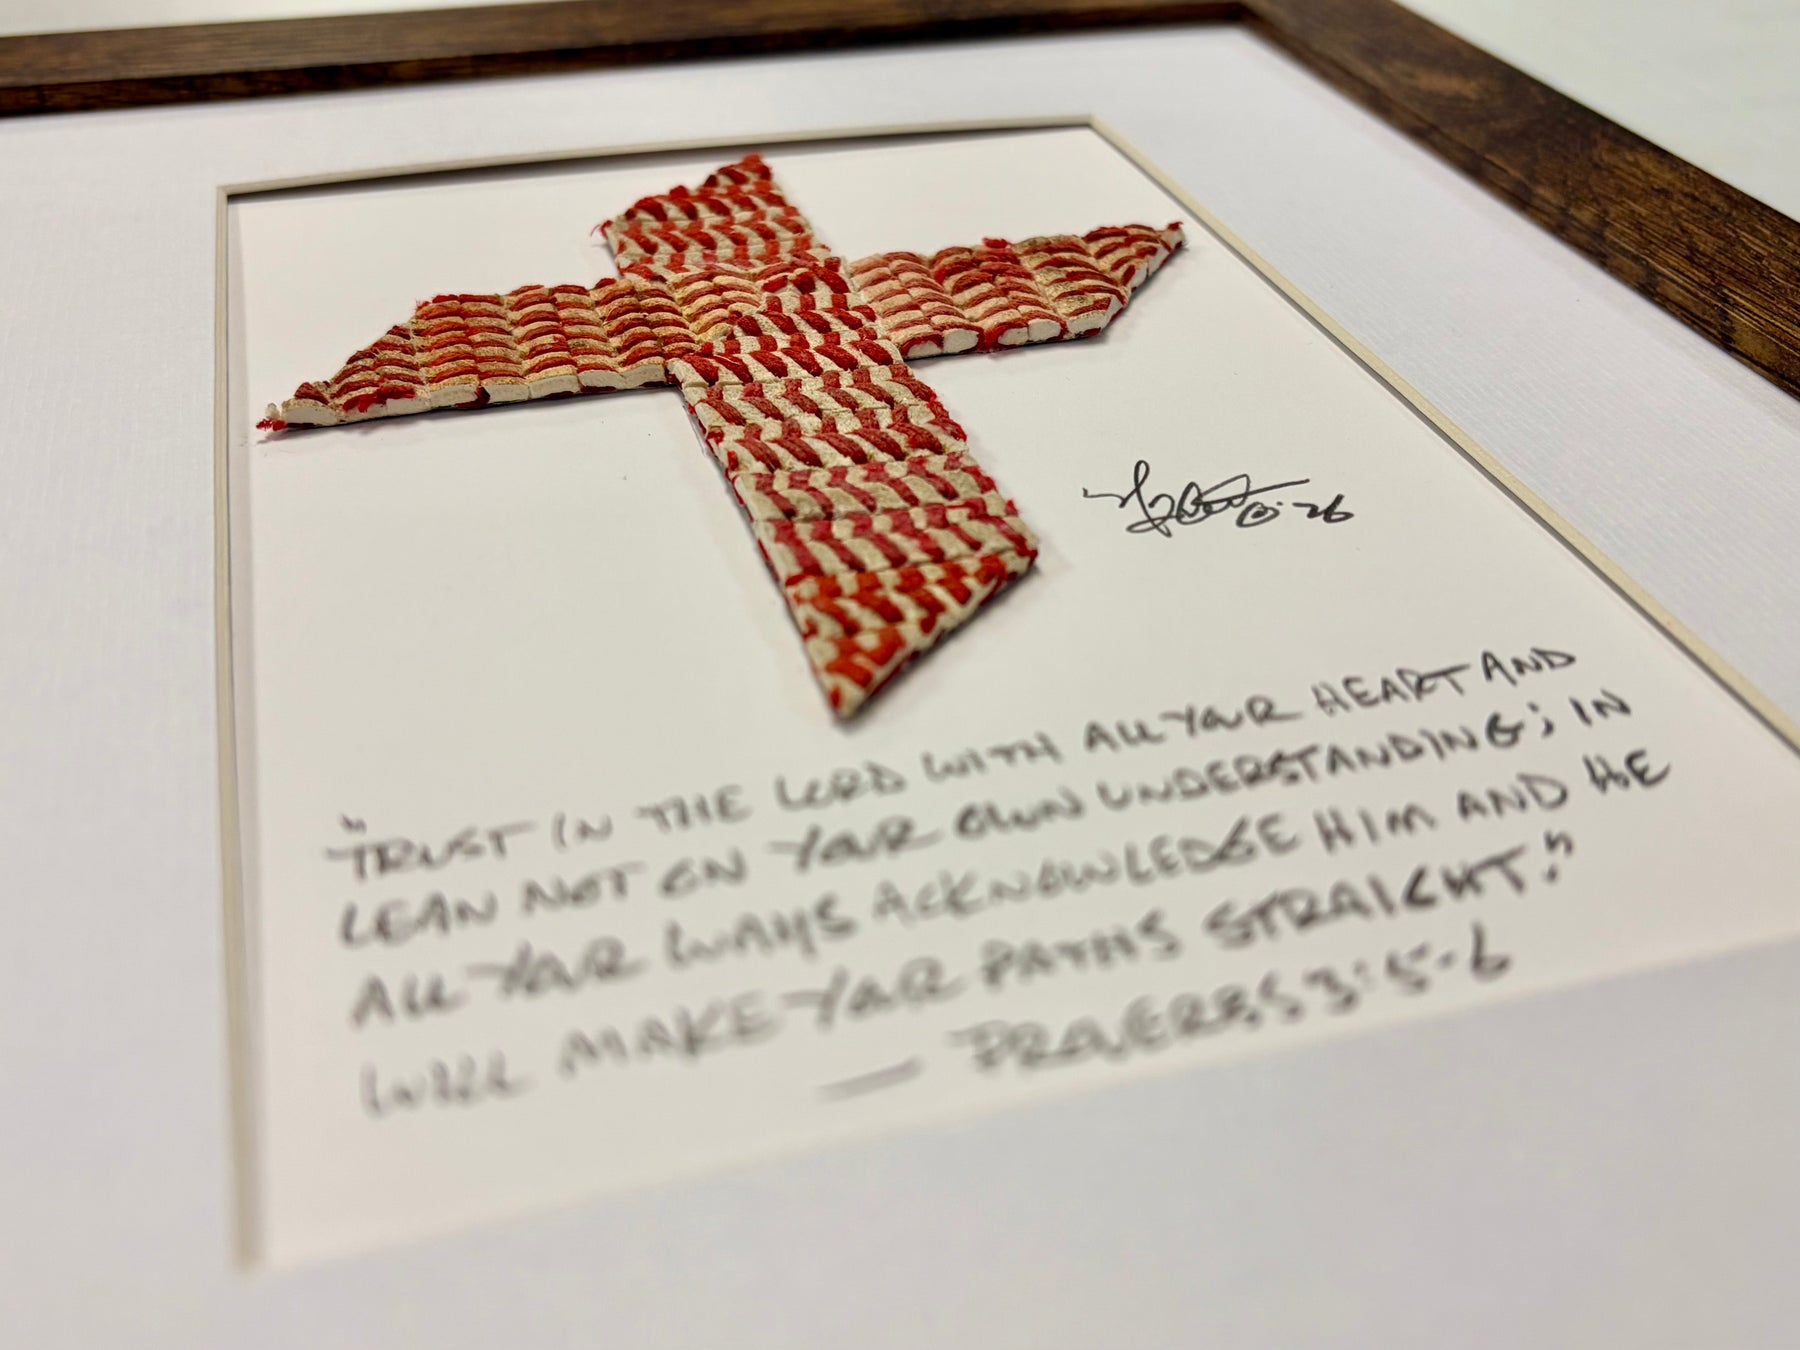 "TRUST IN THE LORD WITH ALL YOUR HEART AND
LEAN NOT ON YOUR OWN UNDERSTANDING; IN
ALL YOUR WAYS ACKNOWLEDGE HIM AND HE
WILL MAKE YOUR PATHS STRAIGHT."
— PROVERBS 3:5-6